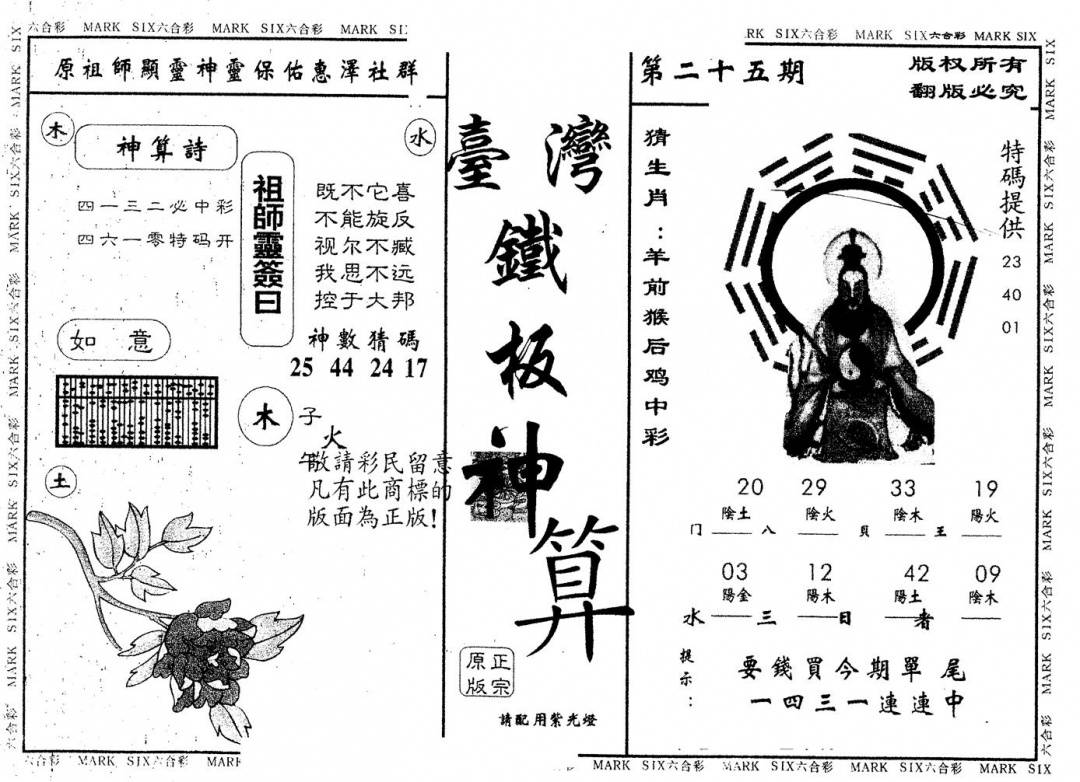 六合彩 MARK SIX六合彩 MARK SIX六合彩 MARK SI
RK SIX六合彩 MARK SIX六合彩 MARK SIX
原祖師顯靈神靈保佑惠澤社群
木
神算詩
水
四一三二必中彩
四六一零特码开
祖師靈簽曰
既不它喜
不能旋反
视尔不臧
我思不远
控于大邦
神數猜碼
25 44 24 17
如意
木
子
火
午
敬請彩民留意
凡有此商標的
版面為正版!
土
臺灣
鐵
板
神
算
正宗
原版
請配用紫光燈
第二十五期
版权所有
翻版必究
猜生肖:羊前猴后鸡中彩
特碼提供
23
40
01
20 29 33 19
陰土 陰火 陰木 陽火
门 八 貝 王
03 12 42 09
陽金 陽木 陽土 陰木
水 三 日 者
提示:
要錢買今期單尾
一四三一連連中
六合彩 MARK SIX六合彩 MARK
MARK SIX六合彩 MARK SIX六合彩 MARK SIX六合彩 MARK SIX
MARK SIX六合彩 MARK SIX六合彩 MARK SIX六合彩 MARK SIX六合彩 MARK SIX
MARK SIX六合彩 MARK SIX六合彩 MARK SIX六合彩 MARK SIX六合彩 MARK SIX